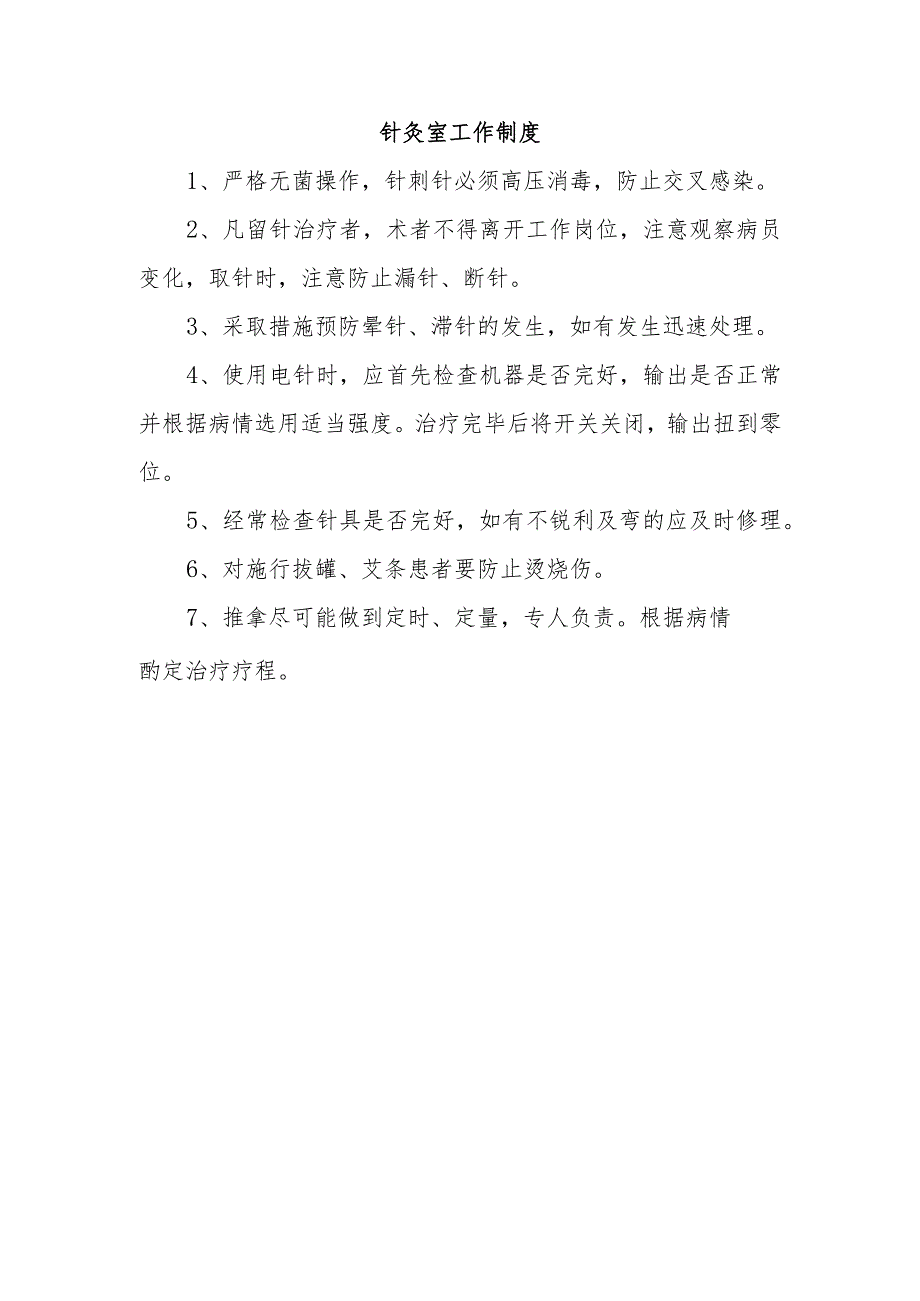 针灸室工作制度
1、严格无菌操作，针刺针必须高压消毒，防止交叉感染。
2、凡留针治疗者，术者不得离开工作岗位，注意观察病员
变化，取针时，注意防止漏针、断针。
3、采取措施预防晕针、滞针的发生，如有发生迅速处理。
4、使用电针时，应首先检查机器是否完好，输出是否正常
并根据病情选用适当强度。治疗完毕后将开关关闭，输出扭到零
位。
5、经常检查针具是否完好，如有不锐利及弯的应及时修理。
6、对施行拔罐、艾条患者要防止烫烧伤。
7、推拿尽可能做到定时、定量，专人负责。根据病情
酌定治疗疗程。